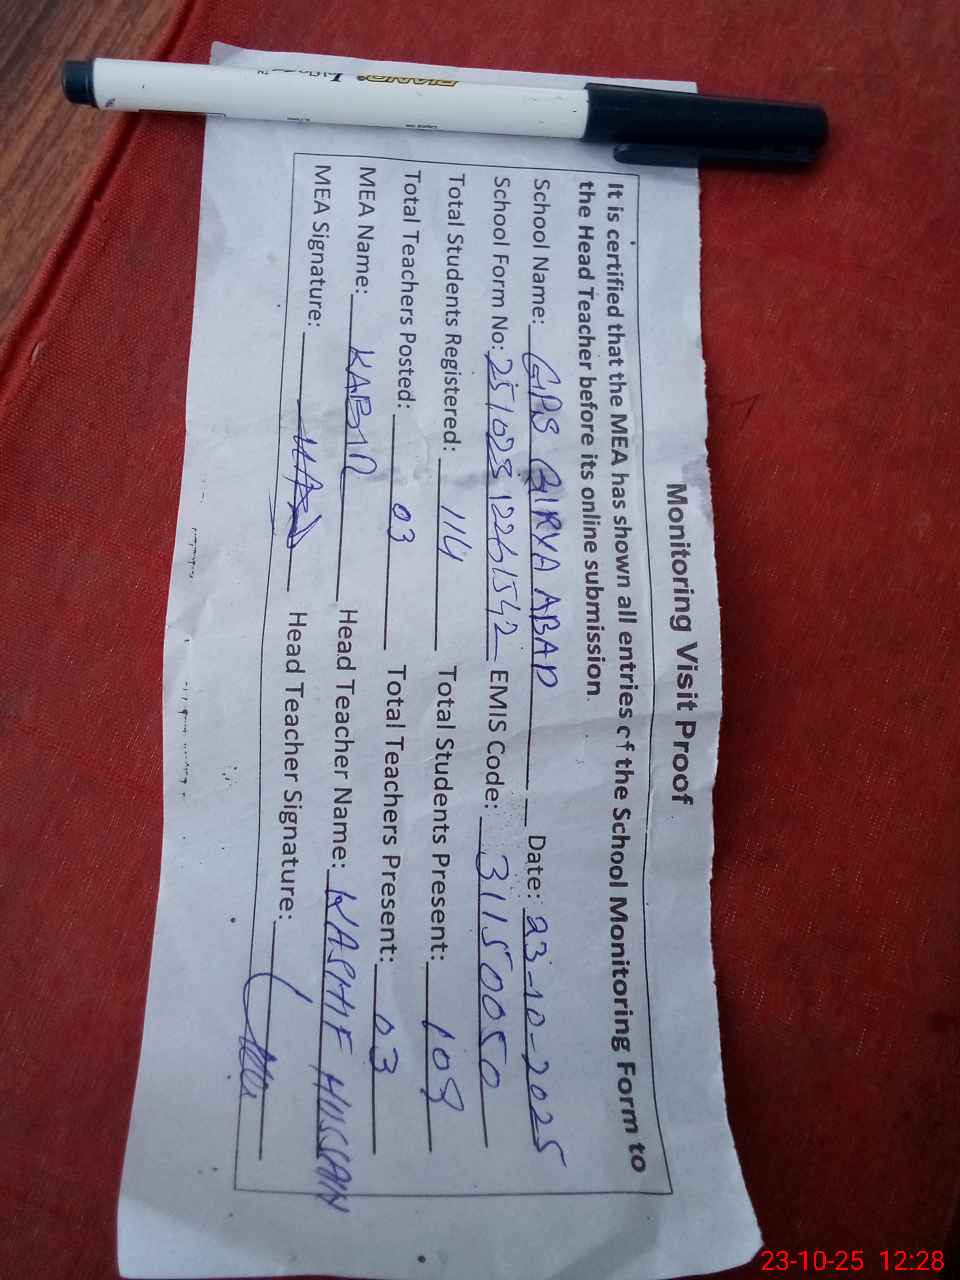 Monitoring Visit Proof
It is certified that the MEA has shown all entries of the School Monitoring Form to
the Head Teacher before its online submission.
School Name: GPS GIRYA ABAD Date: 23-10-2025
School Form No: 25102312261542 EMIS Code: 31150050
Total Students Registered: 114 Total Students Present: 108
Total Teachers Posted: 03 Total Teachers Present: 03
MEA Name: KABIR Head Teacher Name: WASHIF HUSSAIN
MEA Signature: Head Teacher Signature:
PIANO
23-10-25 12:28